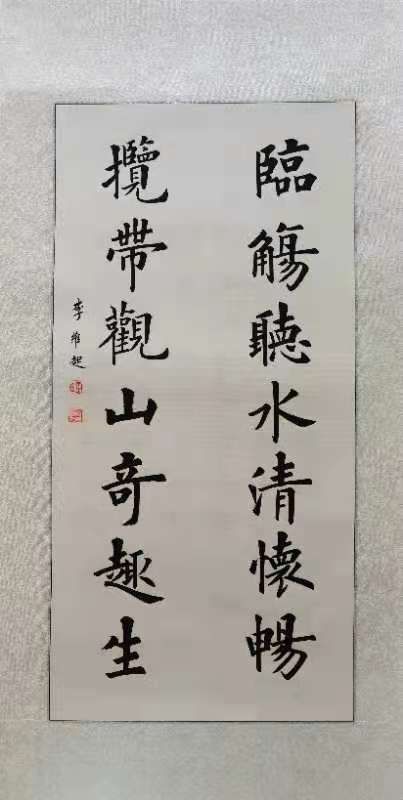 臨觴聽水清懷暢
攬帶觀山奇趣生
李維起